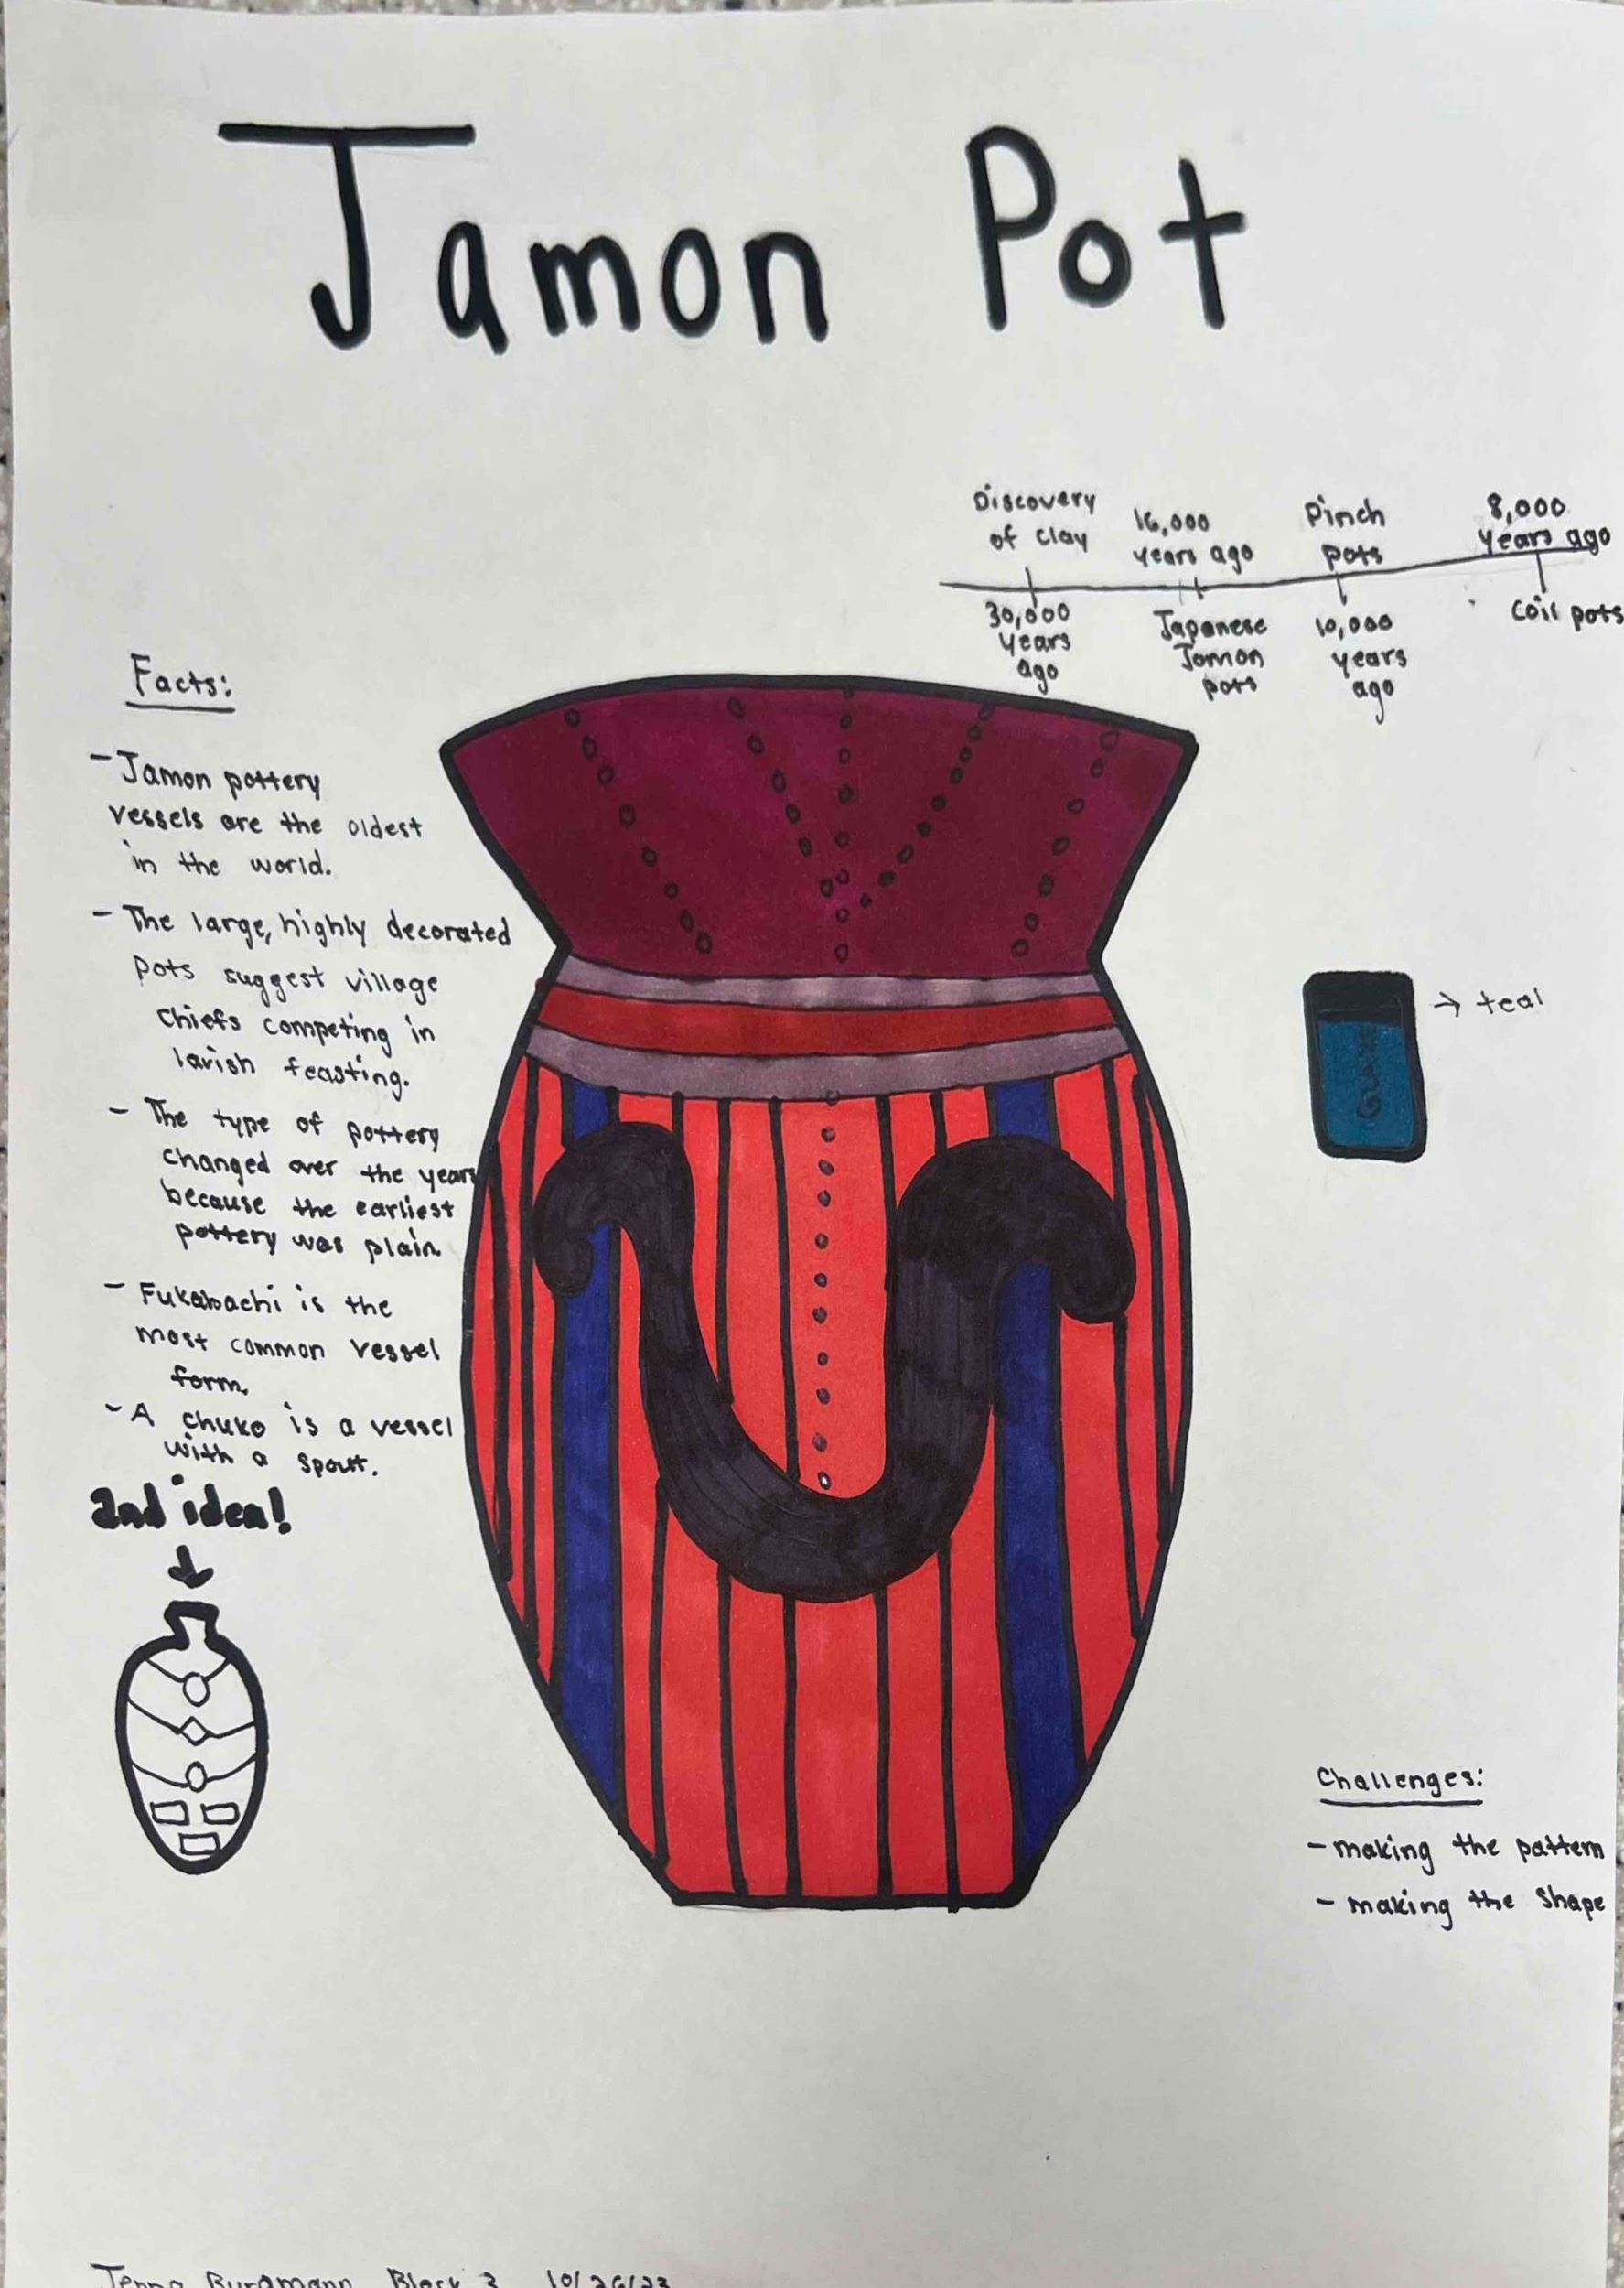 Jamon Pot
Discovery
of clay
16,000
years ago
Pinch
pots
8,000
years ago
30,000
years
ago
Japanese
Jomon
pots
10,000
years
ago
coil pots
Facts:
- Jamon pottery
vessels are the oldest
in the world.
- The large, highly decorated
pots suggest village
chiefs competing in
lavish feasting.
- The type of pottery
changed over the years
because the earliest
pottery was plain.
- Fukabachi is the
most common vessel
form.
- A chuko is a vessel
with a spout.
2nd idea!
GLAZE
→ teal
Challenges:
- making the pattern
- making the shape
Block 3 10/26/23